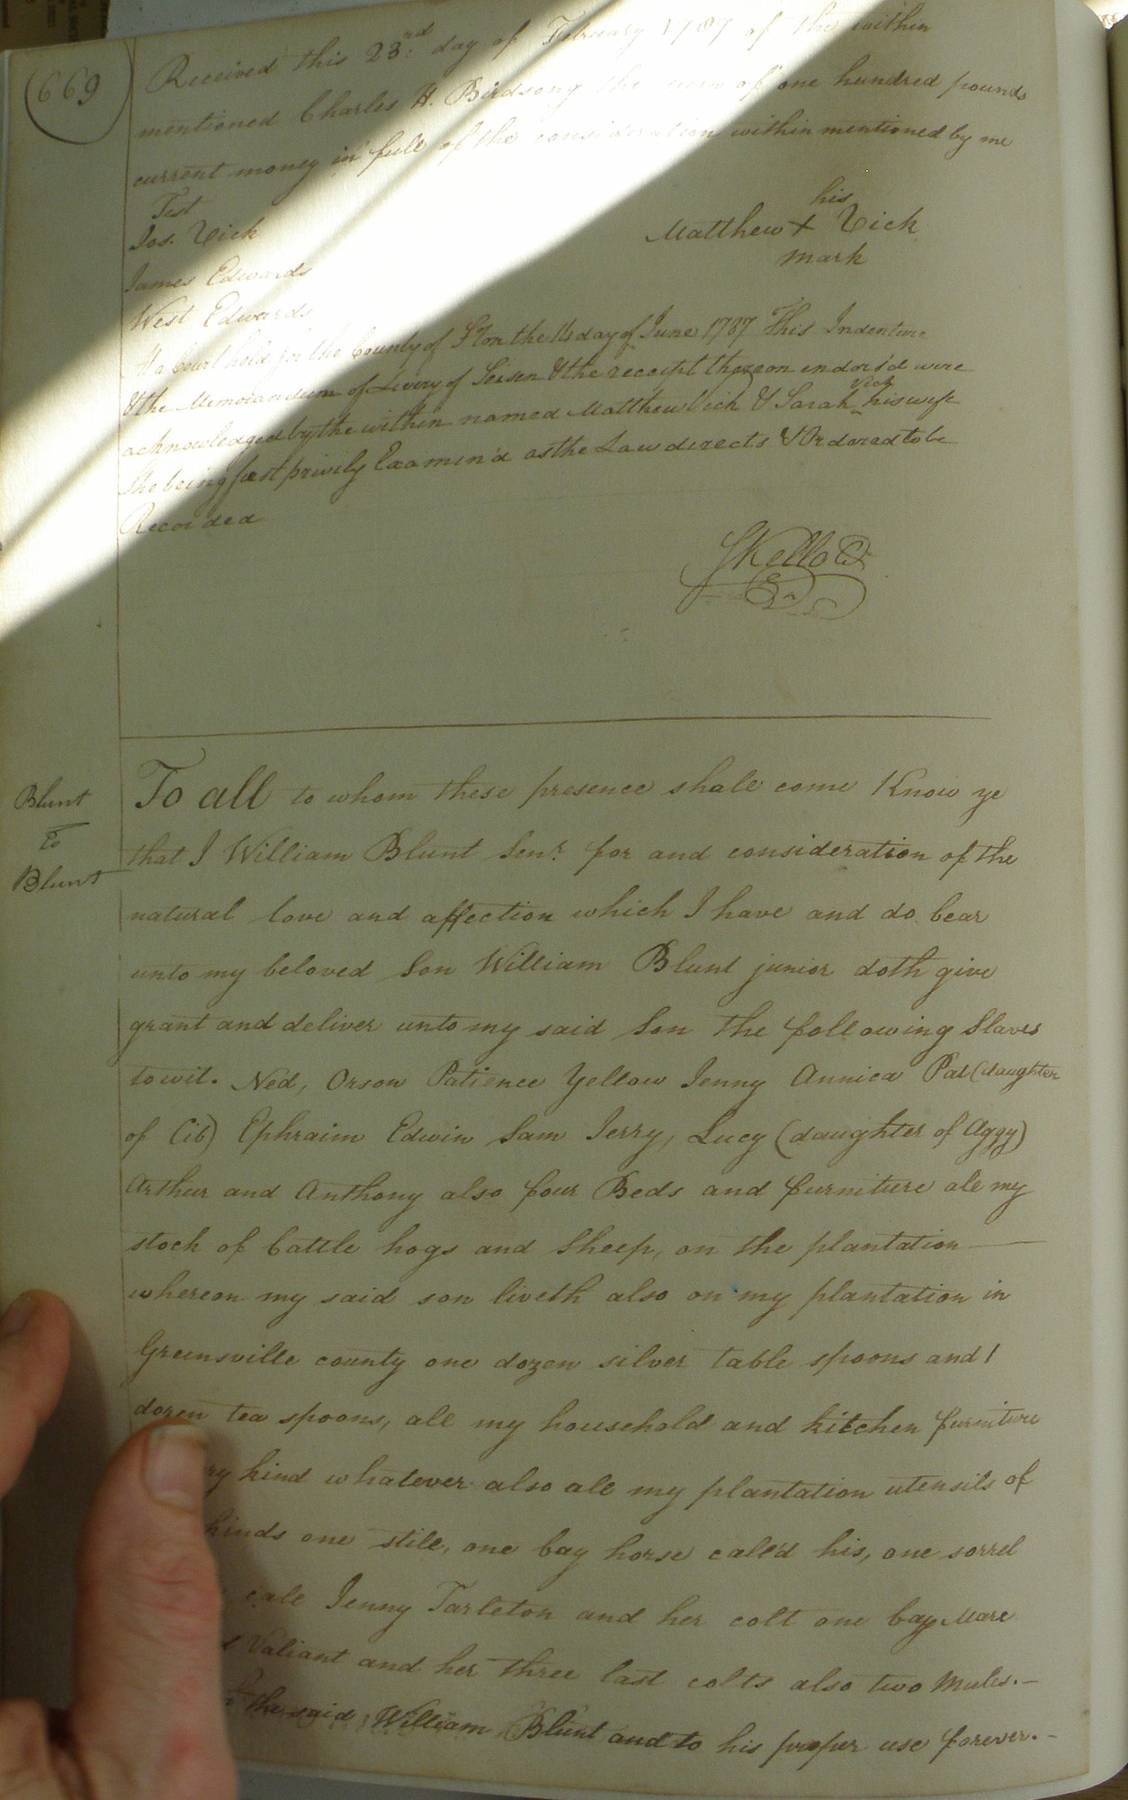 (669)
Received this 23.rd day of February 1787 of the within
mentioned Charles H. Birdsong the sum of one hundred pounds
current money in full of the consideration within mentioned by me
Test
Jos. Vick
his
Matthew + Vick
mark
James Edwards
West Edwards
At a Court held for the County of S'ton the 14 day of June 1787 This Indenture
& the Memorandum of Livery of Seisen & the receipt thereon endors'd were
acknowledged by the within named Matthew Vick & Sarah Vick his wife
she being first privily Examin'd as the Law directs & Ordered to be
Recorded
SKello
Blunt
To
Blunt
To all to whom these presence shall come Know ye
that I William Blunt Senr. for and consideration of the
natural love and affection which I have and do bear
unto my beloved Son William Blunt junior doth give
grant and deliver unto my said Son the following Slaves
towit. Ned, Orson Patience Yellow Jenny Annica Pat (daughter
of Cib) Ephraim Edwin Sam Jerry, Lucy (daughter of Aggy)
Arthur and Anthony also four Beds and furniture all my
stock of Cattle hogs and Sheep, on the plantation
whereon my said son liveth also on my plantation in
Greensville county one dozen silver table spoons and 1
dozen tea spoons, all my household and kitchen furniture
ry kind whatever also all my plantation utensils of
kinds one still, one bay horse call'd his, one sorrel
cale Jenny Tarleton and her colt one bay Mare
d Valiant and her three last colts also two Mules.-
the said William Blunt and to his proper use forever.-